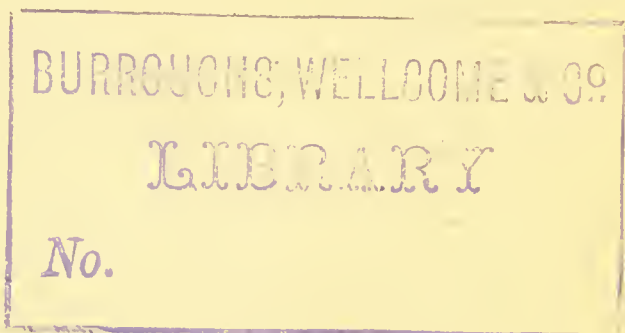 BURROUGHS, WELLCOME & Co.
LIBRARY
No.